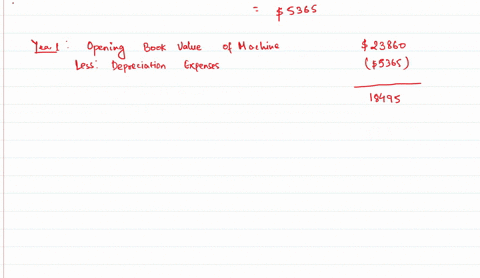 = $5365
Year 1: Opening Book Value of Machine $23860
Less: Depreciation Expenses ($5365)
18495